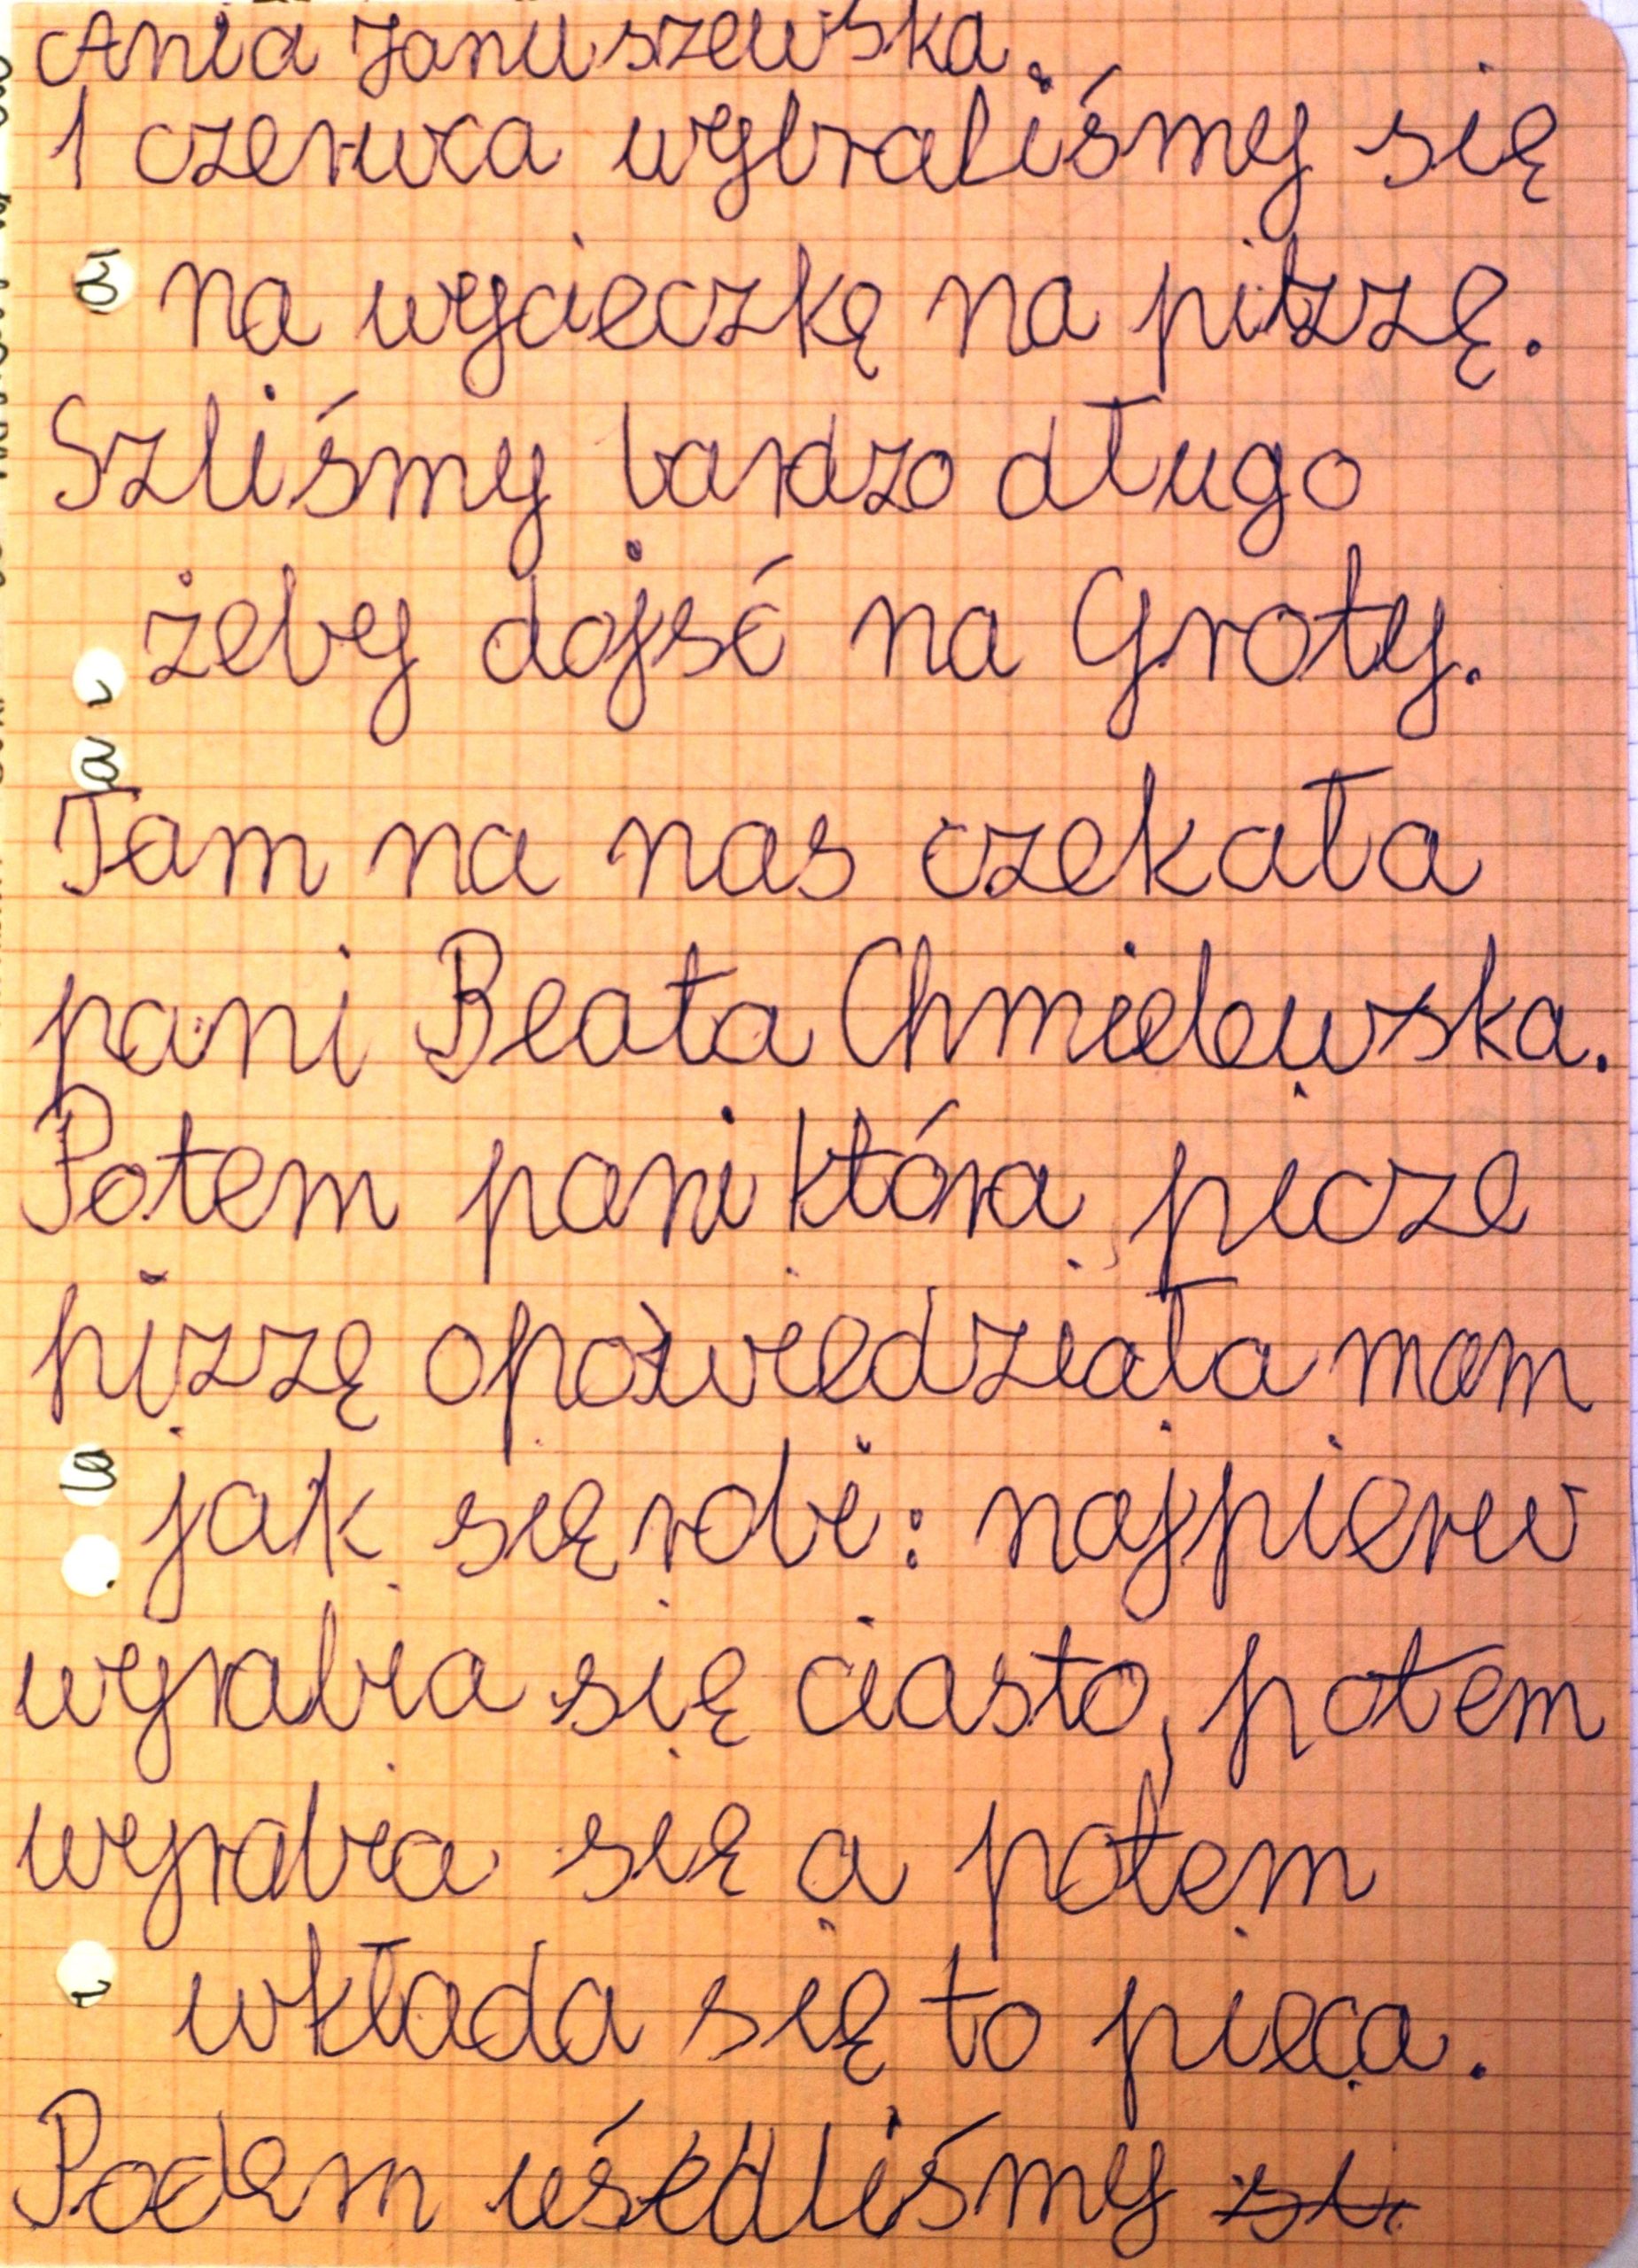 Ania Januszewska.
1 czerwca wybraliśmy się
na wycieczkę na pizzę.
Szliśmy bardzo długo
żeby dojść na Groty.
Tam na nas czekała
pani Beata Chmielewska.
Potem pani która piecze
pizzę opowiedziała nam
jak się robi: najpierw
wyrabia się ciasto, potem
wyrabia się a potem
wkłada się to pieca.
Podem usiedliśmy